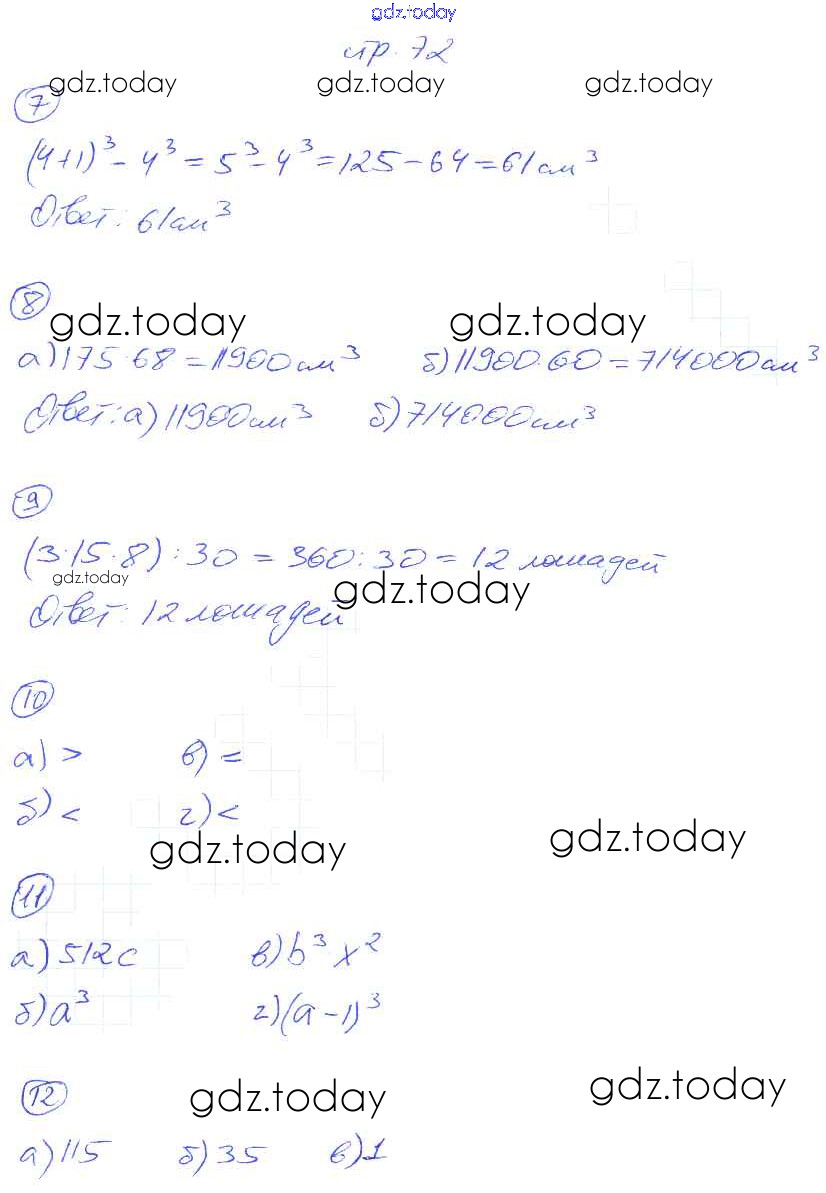 gdz.today
стр. 72
gdz.today gdz.today gdz.today
7
(4+1)³ - 4³ = 5³ - 4³ = 125 - 64 = 61 см³
Ответ: 61 см³
8
gdz.today gdz.today
а) 175·68 = 11900 см³ б) 11900·60 = 714000 см³
Ответ: а) 11900 см³ б) 714000 см³
9
(3·15·8) : 30 = 360 : 30 = 12 лошадей
gdz.today gdz.today
Ответ: 12 лошадей
10
а) > в) =
б) < г) <
gdz.today gdz.today
11
а) 512c в) b³x²
б) a³ г) (a-1)³
12
gdz.today gdz.today
а) 115 б) 35 в) 1